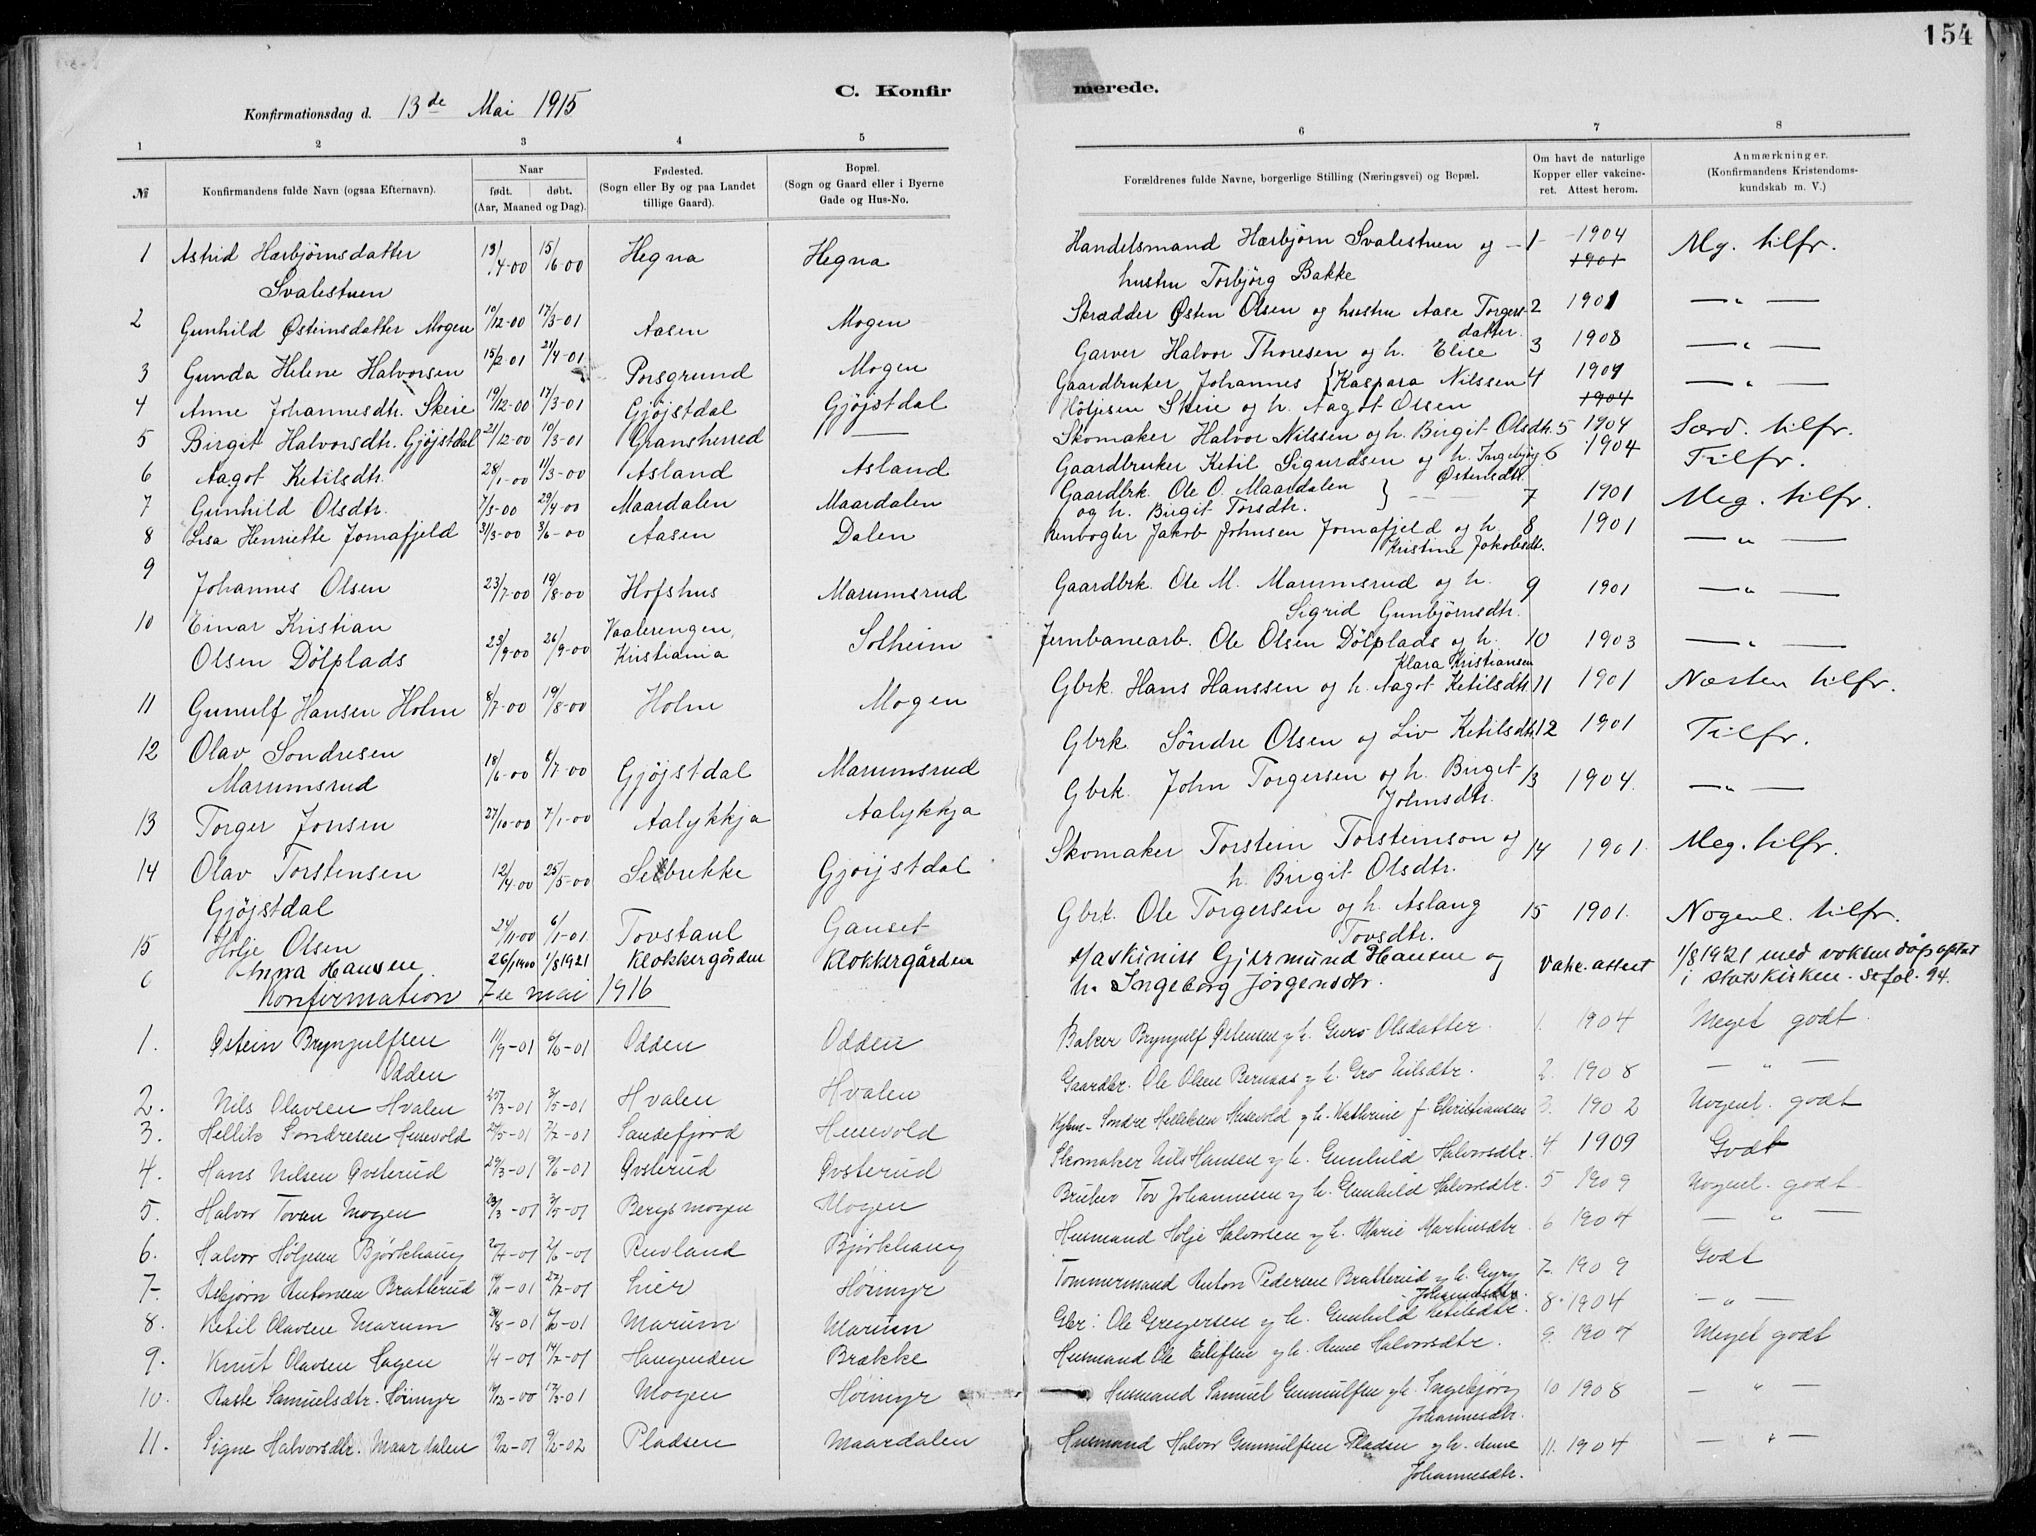 154
C. Konfirmerede.
Konfirmationsdag d. 13de Mai 1915
1 2 3 4 5 6 7 8
№ Konfirmandens fulde Navn (ogsaa Efternavn). Naar født. døbt. (Aar, Maaned og Dag). Fødested. (Sogn eller By og paa Landet tillige Gaard). Bopæl. (Sogn og Gaard eller i Byerne Gade og Hus-No. Forældrenes fulde Navne, borgerlige Stilling (Næringsvei) og Bopæl. Om havt de naturlige Kopper eller vakcineret. Attest herom. Anmærkninger. (Konfirmandens Kristendomskundskab m. V.)
1 Astrid Hærbjørnsdatter 13/4-00 15/6-00 Hegna Hegna Handelsmand Hærbjørn Svalestuen og -1- -1904 Mg. tilfr.
Svalestuen hustru Torbjörg Bakke 1901
2 Gunhild Østeinsdatter Mogen 10/12-00 17/3-01 Aasen Mogen Skrædder Østen Olsen og hustru Aase Torgers- 2 1901 — " —
datter.
3 Gunda Helene Halvorsen 15/2-01 21/4-01 Porsgrund Mogen Garver Halvor Thoresen og h. Elise 3 1908 — " —
4 Anne Johannesdtr. Skeie 19/12-00 17/3-01 Gjøjstdal Gjøjstdal Gaardbruker Johannes {Kaspara Nilssen 4 1904 — " —
Höljesen Skeie og h. Aagot Olsen 1904
5 Birgit Halvorsdtr. Gjøjstdal 21/12-00 10/3-01 Gransherred — Skomaker Halvor Nilssen og h. Birgit Olsdtr. 5 1904 Særd. tilfr.
6 Aagot Ketilsdtr. 28/1-00 11/3-00 Asland Asland Gaardbruker Ketil Sigurdsen og h. Ingebjøg 6 1904 Tilfr.
Østensdtr.
7 Gunhild Olsdtr. 7/3-00 29/4-00 Maardalen Maardalen Gaardbrk. Ole O. Maardalen } 7 1901 Meg. tilfr.
og h. Birgit Torsdtr.
8 Lisa Henriette Jomafjeld 31/3-00 3/6-00 Aasen Dalen Renvogter Jakob Johnsen Jomafjeld og h. 8 1901 — " —
Kristine Jakobsdt.
9 Johannes Olsen 23/7-00 19/8-00 Hofshus Marumsrud Gaardbrk. Ole M. Marumsrud og h. 9 1901 — " —
Sigrid Gunbjørnsdtr.
10 Einar Kristian Vaalerengen,
Olsen Dölplads 23/9-00 26/9-00 Kristiania Solheim Jernbanearb. Ole Olsen Dölplads og h. 10 1903 — " —
Klara Kristiansen
11 Gunulf Hansen Holm 8/7-00 19/8-00 Holm Mogen Gbrk. Hans Hanssen og h. Aagot Ketilsdtr. 11 1901 Næsten tilfr.
12 Olav Sondresen
Marumsrud 18/6-00 8/7-00 Gjøjstdal Marumsrud Gbrk. Söndre Olsen og Liv Ketilsdtr. 12 1901 Tilfr.
13 Torger Jonsen 27/10-00 7/1-00 Aalykkja Aalykkja Gbrk. John Torgersen og h. Birgit 13 1904. — " —
Johnsdtr.
14 Olav Torstensen 12/4-00 25/5-00 Selbrekke Gjøijstdal Skomaker Torstein Torsteinson og 14 1901. Meg. tilfr.
Gjøjstdal h. Birgit Olsdtr.
15 Hölje Olsen 24/11-00 6/1-01 Tovstaul Ganset Gbrk. Ole Torgersen og h. Aslaug 15 1901. Nogenl. tilfr.
Tovsdtr.
Anna Hansen 26/1 1900 1/8 1921 Klokkergården Klokkergården Maskinist Gjermund Hansen og Vakc. attest 1/8 1921 med voksen dåp optat
h. Ingeborg Jørgensdtr. i statskirken. Se fol. 94.
Konfirmation 7de mai 1916
1. Østein Brynjulfsen 11/9-01 Odden Odden Baker Brynjulf Østensen og h. Guro Olsdatter. 1. 1904 Meget godt.
Odden
2. Nils Olavsen Hvalen 25/3-01 3/5-01 Hvalen Hvalen Gaardbr. Ole Olsen Bernaas og h. Gro Nilsdtr. 2. 1908 — " —
3. Hellik Sondresen Husevold Sandefjord Husevold Sondre Helleksen Husevold og h. Kathrine f. Christiansen 3. 1902 Nogenl. godt
4. Hans Nilsen Øvsterud 29/3-01 Øvsterud Øvsterud Skomaker Nils Hansen og h. Gunhild Halvorsdtr. 4 1909 Godt
5. Halvor Tovsen Mogen Bergsmogen Mogen Tov Johannesen og h. Gunhild Halvorsdtr. 5 1909 Nogenl. godt
6. Halvor Höljesen Björkhaug Ruvland Björkhaug Husmand Hölje Halvorsen og h. Marie Martinsdtr. 6 1904 — " —
7. Asbjørn Antonsen Bratterud Lier Høimyr Tømmermand Anton Pedersen Bratterud og h. Gyry 7- 1909 Godt
Johannesdtr.
8. Ketil Olavsen Marum Marum Marum Gbr: Ole Gregersen og h. Gunhild Ketilsdtr. 8. 1904 — " —
9. Knut Olavsen Hagen 1/4-01 Haugenden Brække Husmand Ole Eilifsen og h. Anne Halvorsdtr. 9. 1904 Meget godt
10. Aaste Samuelsdtr. Høimyr Mogen Høimyr Husmand Samuel Gunnulfsen og h. Ingebjørg 10 1908 — " —
Johannesdtr.
11. Signe Halvorsdtr. Maardalen Pladsen Maardalen Husmand Halvor Gunnulfsen Pladsen og h. Anne 11. 1904 — " —
Johannesdtr.